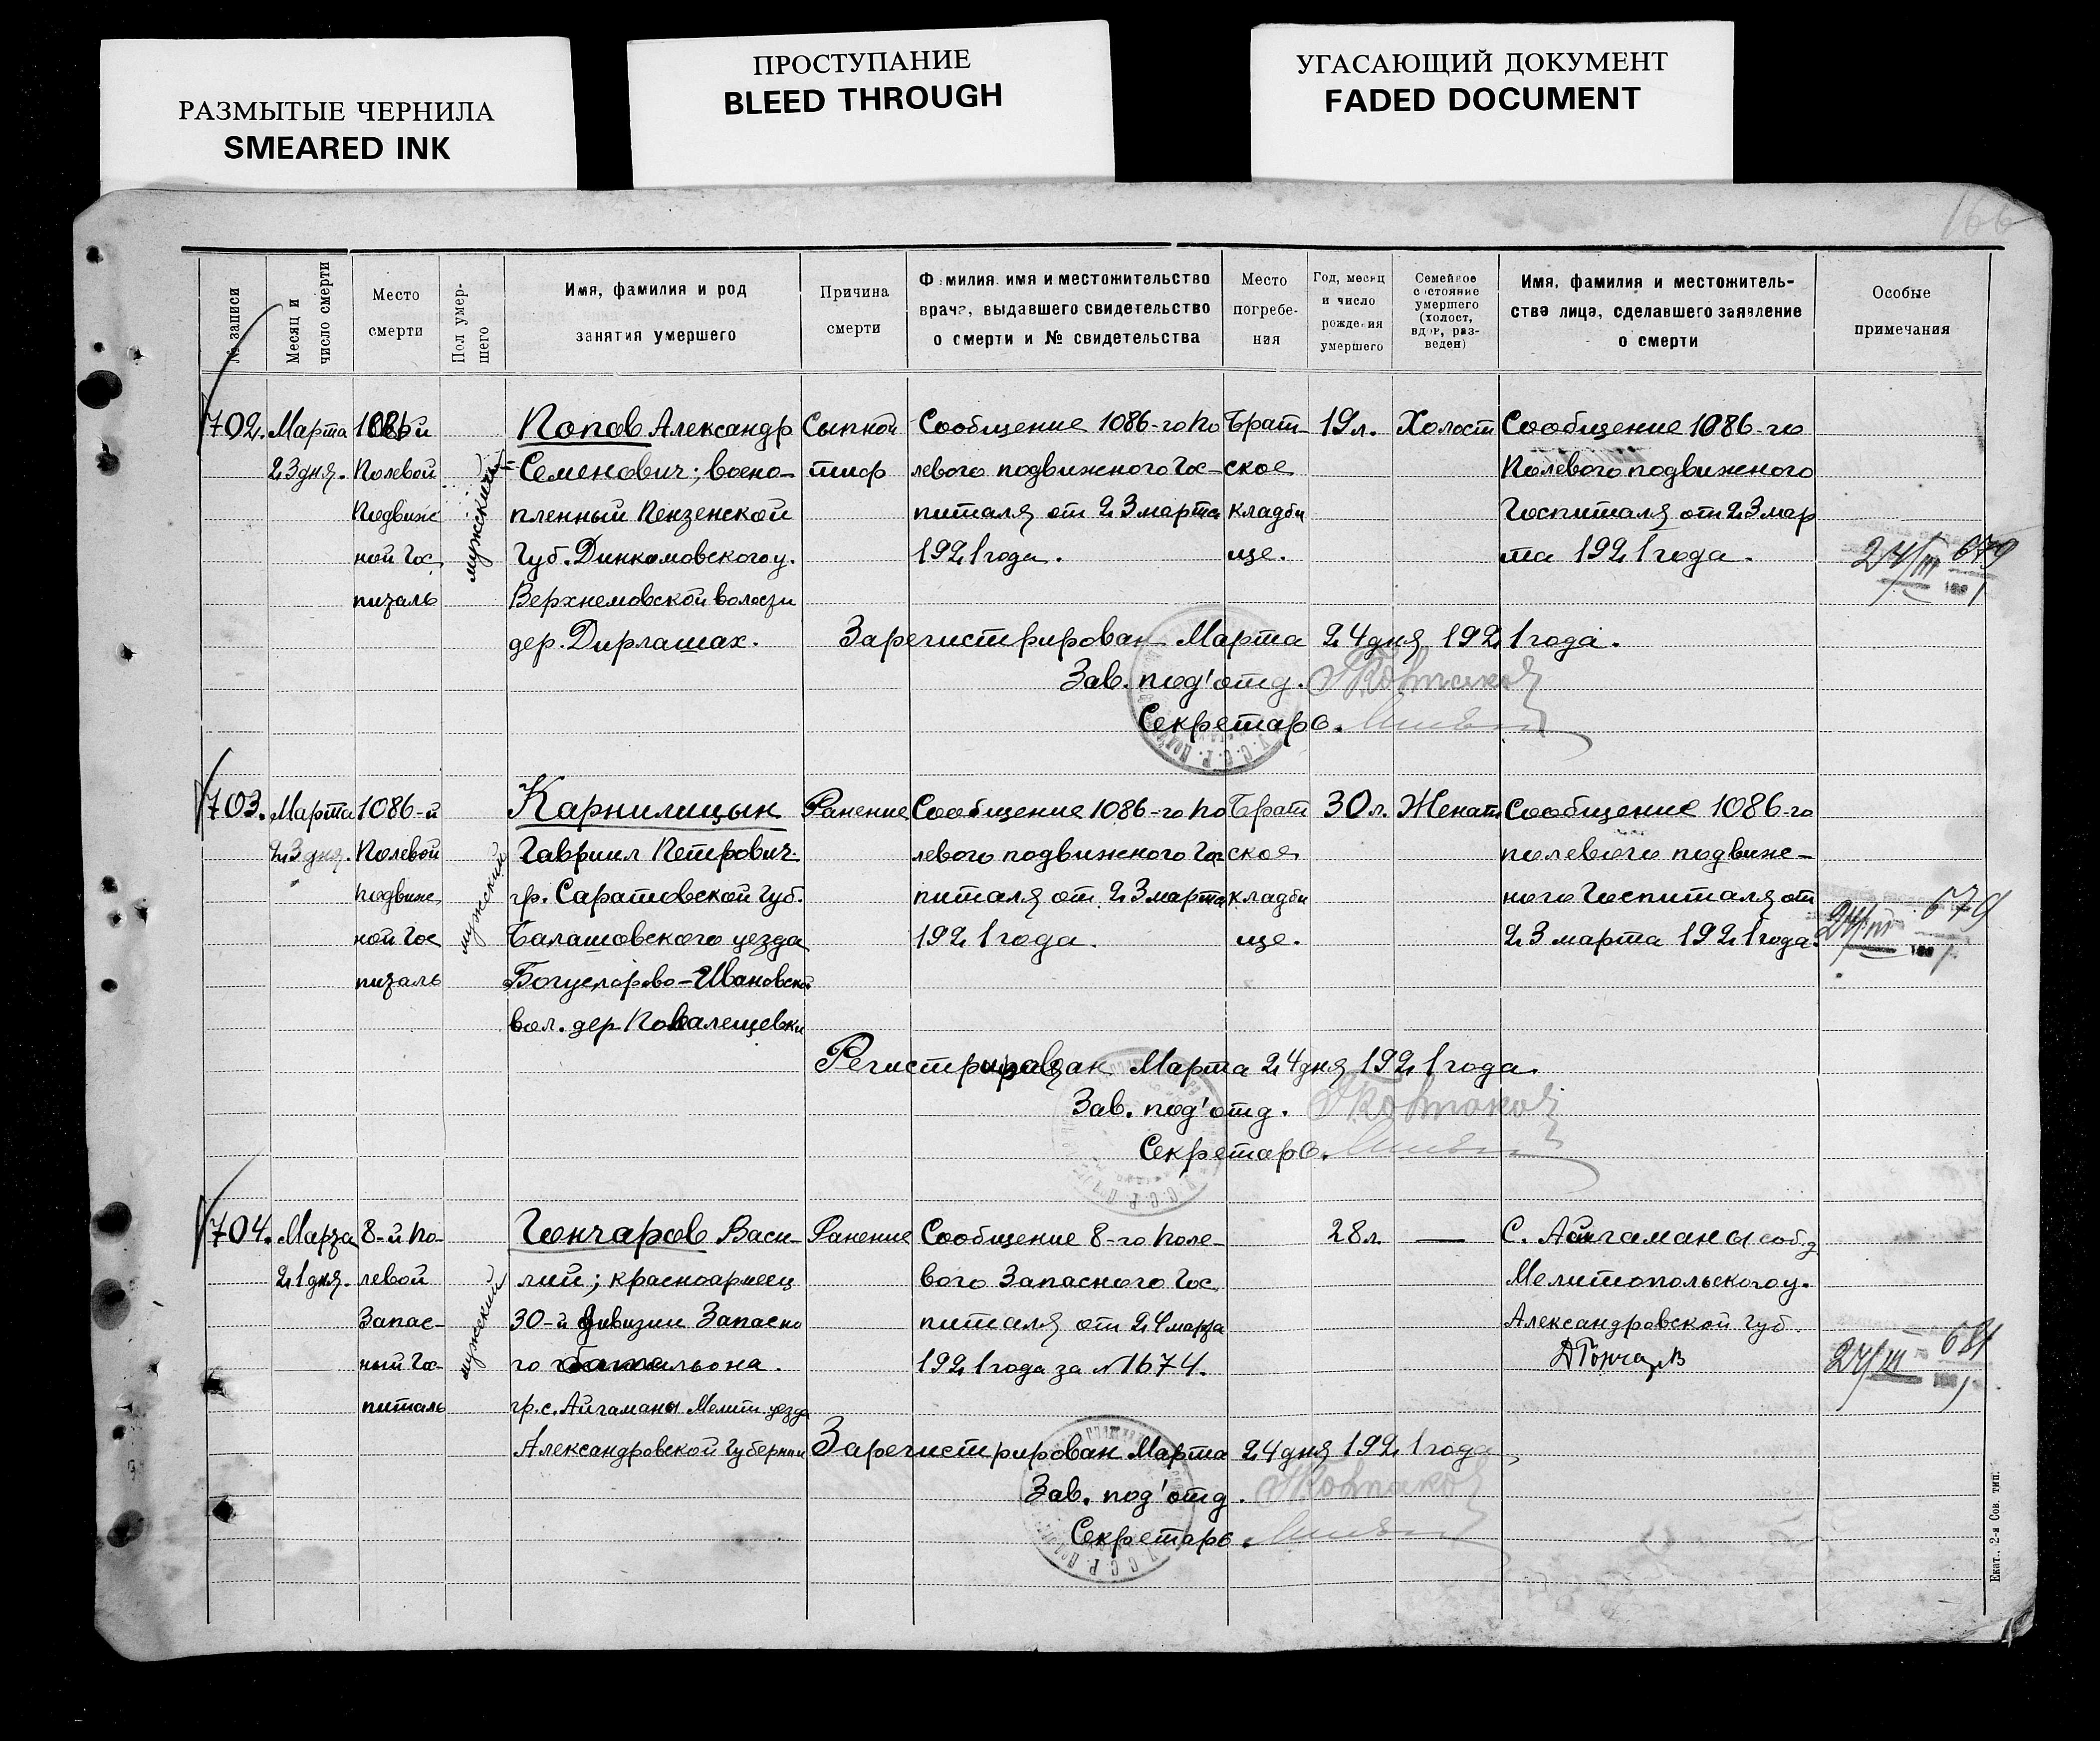 РАЗМЫТЫЕ ЧЕРНИЛА
SMEARED INK
ПРОСТУПАНИЕ
BLEED THROUGH
УГАСАЮЩИЙ ДОКУМЕНТ
FADED DOCUMENT
166
№ записи
Месяц и
число смерти
Место
смерти
Пол умер-
шего
Имя, фамилия и род
занятия умершего
Причина
смерти
Фамилия имя и местожительство
врача, выдавшего свидетельство
о смерти и № свидетельства
Место
погребе-
ния
Год, месяц
и число
рождения
умершего
Семейное
состояние
умершего
(холост,
вдов, раз-
веден)
Имя, фамилия и местожитель-
ство лица, сделавшего заявление
о смерти
Особые
примечания
702.
Марта
23 дня.
1086й
Полевой
Подвиж
ной Гос
питаль
мужской
Попов Александр
Семенович; воено-
пленный Пензенской
Губ. Динкомовского у.
Верхнемовской волости
дер. Дирлашах.
Сыпной
тиф
Сообщение 1086-го По
левого подвижного Гос-
питаля от 23 марта
1921 года.
Брат
ское
кладби
ще.
19 л.
Холост
Сообщение 1086-го
Полевого подвижного
Госпиталя от 23 мар
та 1921 года.
24/III 679
Зарегистрирован Марта 24 дня 1921 года.
Зав. под'отд.
Секретарь.
703.
Марта
23 дня.
1086-й
Полевой
подвиж
ной Гос
питаль
мужской
Карнилицын
Гавриил Петрович
гр. Саратовской Губ.
Балашовского уезда
вол. дер
Ранение
Сообщение 1086-го По
левого подвижного Гос
питаля от 23 марта
1921 года.
Брат
ское
кладби
ще.
30 л.
Женат
Сообщение 1086-го
полевого подвиж-
ного Госпиталя от
23 марта 1921 года.
24/III 679
Регистрирован Марта 24 дня 1921 года.
Зав. под'отд.
Секретарь.
704.
Марта
21 дня.
8-й По-
левой
Запас-
ный Гос-
питаль
мужской
Гончаров Васи-
лий; красноармеец
30-й дивизии Запасно
го батальона.
гр. с. Айгаманы Мелит уезда
Александровской Губернии
Ранение
Сообщение 8-го Поле-
вого Запасного Гос.
питаля от 24 марта
1921 года за № 1674.
28 л.
—
С. Айгаманы
Мелитопольского у.
Александровской Губ.
24/III 681
Зарегистрирован Марта 24 дня 1921 года
Зав. под'отд.
Секретарь.
Екат.. 2-я Сов. тип.